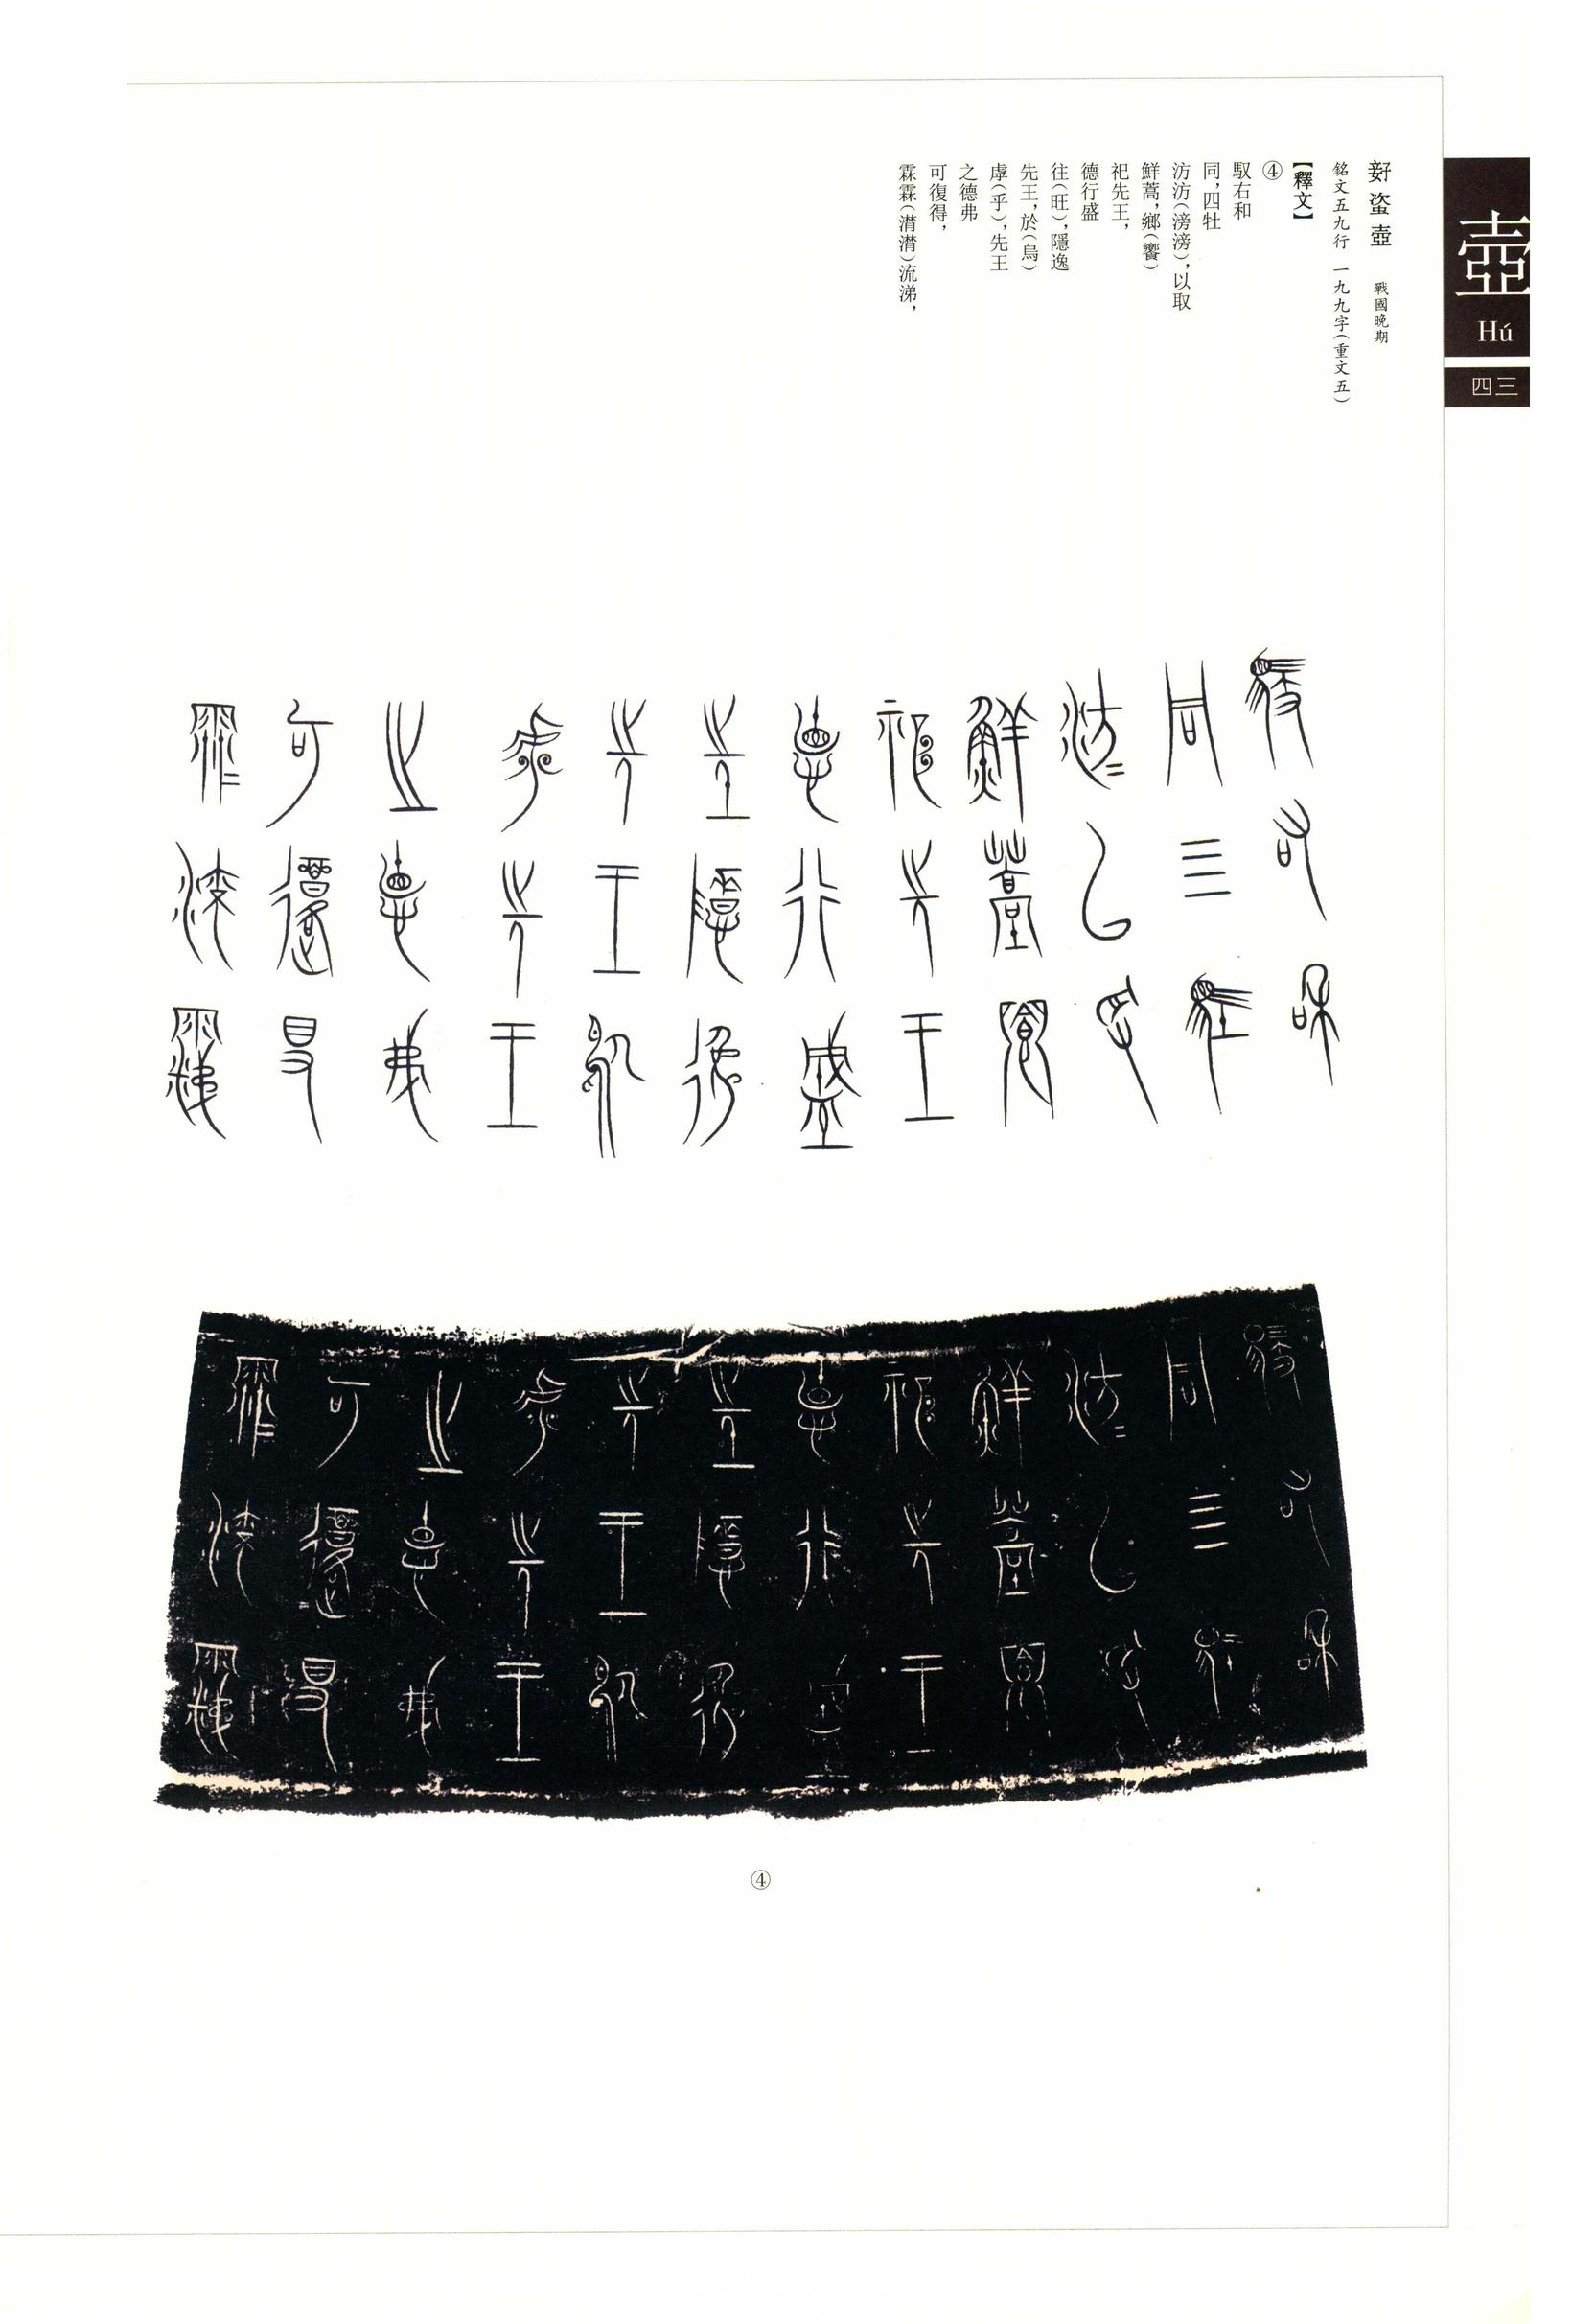 壺
Hú
四三
𡚬盗壺 戰國晚期
銘文五九行 一九九字(重文五)
【釋文】
④
馭右和
同，四牡
汸汸(滂滂)，以取
鮮蒿，鄉(饗)
祀先王，
德行盛
往(旺)，隱逸
先王，於(烏)
虖(乎)，先王
之德弗
可復得，
霖霖(潸潸)流涕，
④